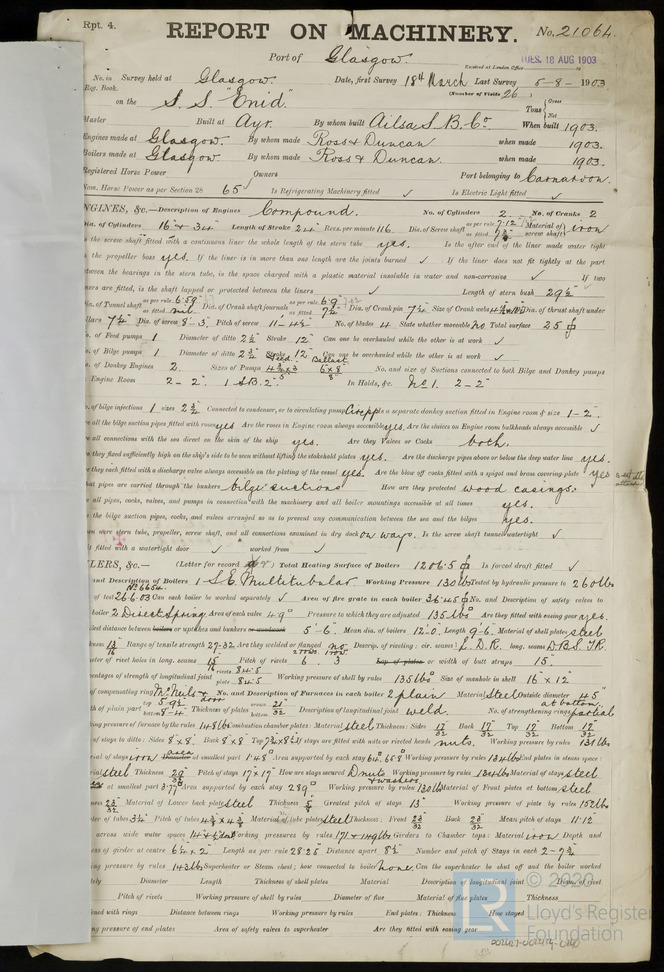 Rpt. 4.
REPORT ON MACHINERY.
No. 21064.
Port of Glasgow.
Received at London Office
TUES. 18 AUG 1903
No. in Survey held at Glasgow. Date, first Survey 18th March Last Survey 5-8-1903
Reg. Book.
(Number of Visits 26)
on the S.S. "Enid"
Tons Gross Net
Master Built at Ayr. By whom built Ailsa S. B. Co. When built 1903.
Engines made at Glasgow. By whom made Ross & Duncan when made 1903.
Boilers made at Glasgow. By whom made Ross & Duncan. when made 1903.
Registered Horse Power Owners Port belonging to Carnarvon.
Nom. Horse Power as per Section 28 65 Is Refrigerating Machinery fitted ✓ Is Electric Light fitted ✓
NGINES, &c.—Description of Engines Compound. No. of Cylinders 2. No. of Cranks 2
Dia. of Cylinders 16" & 34" Length of Stroke 24" Revs. per minute 116 Dia. of Screw shaft as per rule 7.12 as fitted Material of screw shaft iron
the screw shaft fitted with a continuous liner the whole length of the stern tube yes. Is the after end of the liner made water tight
the propeller boss yes. If the liner is in more than one length are the joints burned ✓ If the liner does not fit tightly at the part
between the bearings in the stern tube, is the space charged with a plastic material insoluble in water and non-corrosive ✓ If two
liners are fitted, is the shaft lapped or protected between the liners ✓ Length of stern bush 29½"
Dia. of Tunnel shaft as per rule 6.59 as fitted nil Dia. of Crank shaft journals as per rule 6.9 as fitted 7¼ Dia. of Crank pin 7¼ Size of Crank webs Dia. of thrust shaft under
collars 7¼ Dia. of screw 8-3 Pitch of screw 11-4½ No. of blades 4 State whether moveable no Total surface 25
No. of Feed pumps 1 Diameter of ditto 2½ Stroke 12" Can one be overhauled while the other is at work ✓
No. of Bilge pumps 1 Diameter of ditto 2¾ Stroke 12" Can one be overhauled while the other is at work ✓
Feed. Ballast
No. of Donkey Engines 2. Sizes of Pumps 6" x 8" No. and size of Suctions connected to both Bilge and Donkey pumps
Engine Room 2-2". 1 S.B. 2" In Holds, &c. No 1. 2-2"
No. of bilge injections 1 sizes 2¾ Connected to condenser, or to circulating pump Is a separate donkey suction fitted in Engine room & size 1-2".
all the bilge suction pipes fitted with roses yes Are the roses in Engine room always accessible yes. Are the sluices on Engine room bulkheads always accessible ✓
all connections with the sea direct on the skin of the ship yes. Are they Valves or Cocks both.
they fixed sufficiently high on the ship's side to be seen without lifting the stokehold plates yes. Are the discharge pipes above or below the deep water line yes.
they each fitted with a discharge valve always accessible on the plating of the vessel yes. Are the blow off cocks fitted with a spigot and brass covering plate yes
What pipes are carried through the bunkers bilge suctions How are they protected wood casings.
all pipes, cocks, valves, and pumps in connection with the machinery and all boiler mountings accessible at all times yes.
the bilge suction pipes, cocks, and valves arranged so as to prevent any communication between the sea and the bilges yes.
were stern tube, propeller, screw shaft, and all connections examined in dry dock on ways. Is the screw shaft tunnel watertight ✓
fitted with a watertight door ✓ worked from ✓
LERS, &c.— (Letter for record) Total Heating Surface of Boilers 1206.5 Is forced draft fitted ✓
and Description of Boilers 1 S.E. Multitubular Working Pressure 130 lbs Tested by hydraulic pressure to 260 lbs
No 6654
of test 26.6.03 Can each boiler be worked separately ✓ Area of fire grate in each boiler 36.45 No. and Description of safety valves to
boiler 2 Direct Spring Area of each valve 4.9" Pressure to which they are adjusted 135 lbs Are they fitted with easing gear yes.
distance between boilers or uptakes and bunkers or woodwork 5'-6". Mean dia. of boilers 12-0 Length 9-6 Material of shell plates steel
Range of tensile strength 27-32 Are they welded or flanged no Descrip. of riveting: cir. seams L.D.R. long. seams D.B.S. T.R.
of rivet holes in long. seams Pitch of rivets 6. 3 Lap of plates or width of butt straps 15"
percentages of strength of longitudinal joint rivets 84.5 plate 84.5 Working pressure of shell by rules 135 lbs Size of manhole in shell 16" x 12"
of compensating ring McNeil & door No. and Description of Furnaces in each boiler 2 plain Material steel Outside diameter 45"
of plain part Thickness of plates Description of longitudinal joint weld. No. of strengthening rings partial at bottom
Working pressure of furnace by the rules 148 lbs Combustion chamber plates: Material steel Thickness: Sides 17/32 Back 17/32 Top 17/32 Bottom 17/32
of stays to ditto: Sides 8"x8" Back 8"x8" Top If stays are fitted with nuts or riveted heads nuts. Working pressure by rules 131 lbs
of stays iron Diameter Area at smallest part 1.48" Area supported by each stay Working pressure by rules 134 lbs End plates in steam space:
Material steel Thickness 29/32 Pitch of stays 17" x 17" How are stays secured D nuts & washers Working pressure by rules 134 lbs Material of stays steel
at smallest part 3.77 Area supported by each stay 289" Working pressure by rules 130 lbs Material of Front plates at bottom steel
Thickness 23/32 Material of Lower back plate steel Thickness 5/8 Greatest pitch of stays 13" Working pressure of plate by rules 152 lbs
of tubes 3¼ Pitch of tubes 4¾ x 4½ Material of tube plates steel Thickness: Front 23/32 Back 23/32 Mean pitch of stays 11.12
across wide water spaces Working pressures by rules 171 & 149 lbs Girders to Chamber tops: Material iron Depth and
of girder at centre 6½ x 2" Length as per rule 28.25 Distance apart 8½ Number and pitch of Stays in each 2-7¾
Working pressure by rules 143 lbs Superheater or Steam chest; how connected to boiler none. Can the superheater be shut off and the boiler worked
Diameter Length Thickness of shell plates Material Description of longitudinal joint Diam. of rivet
Pitch of rivets Working pressure of shell by rules Diameter of flue Material of flue plates Thickness
with rings Distance between rings Working pressure by rules End plates: Thickness How stayed
Working pressure of end plates Area of safety valves to superheater Are they fitted with easing gear
© 2020
LR
Lloyd's Register
Foundation